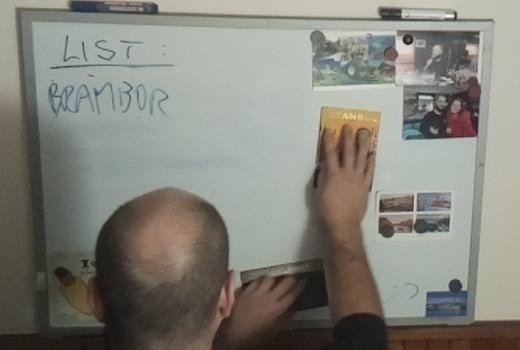 LIST:
BRAMBOR
ISTANBUL